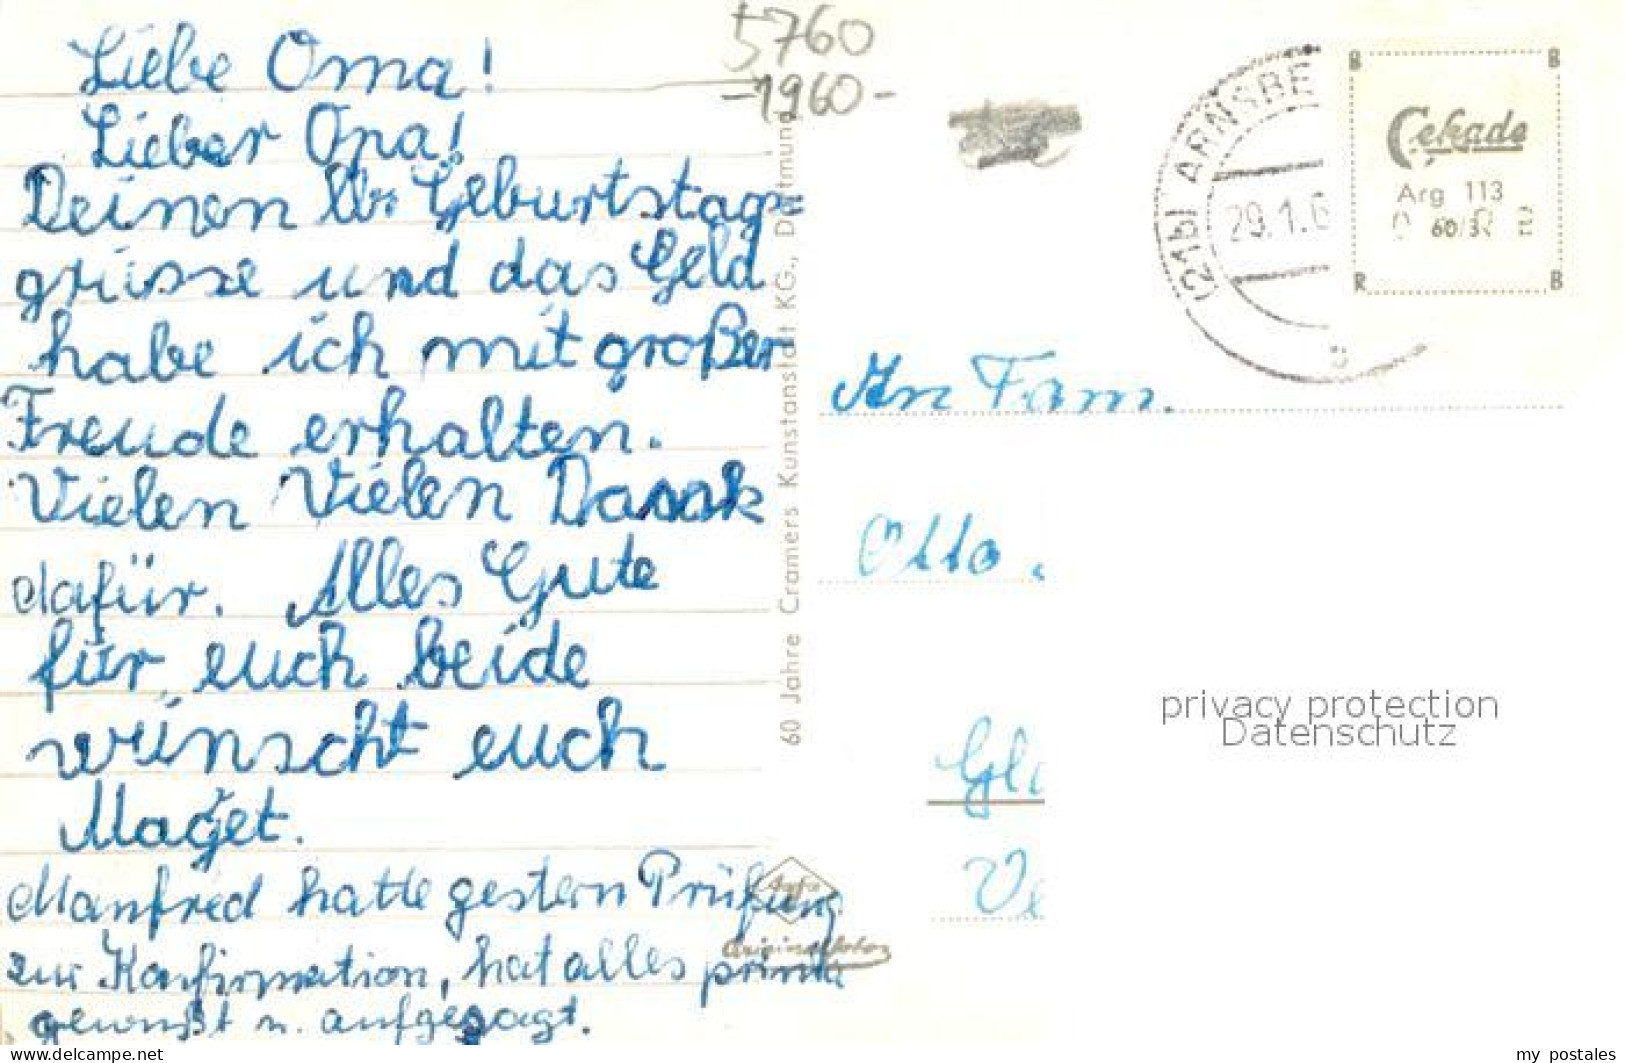 5760
-1960-
Liebe Oma!
Lieber Opa!
Deinen lb. Geburtstags=
grüsse und das Geld
habe ich mit großer
Freude erhalten.
Vielen Vielen Dank
dafür. Alles Gute
für euch beide
wünscht euch
Maget.
Manfred hatte gestern Prüfung
zur Konfirmation, hat alles prima
gewußt u. aufgesagt.
60 Jahre Cramers Kunstanstalt KG., Dortmund
Originalfotos
(21b) ARNSBE
29.1.6
B B
Cekade
Arg 113
60/3
R B
An Fam.
Otto
privacy protection
Datenschutz
www.delcampe.net
my_postales